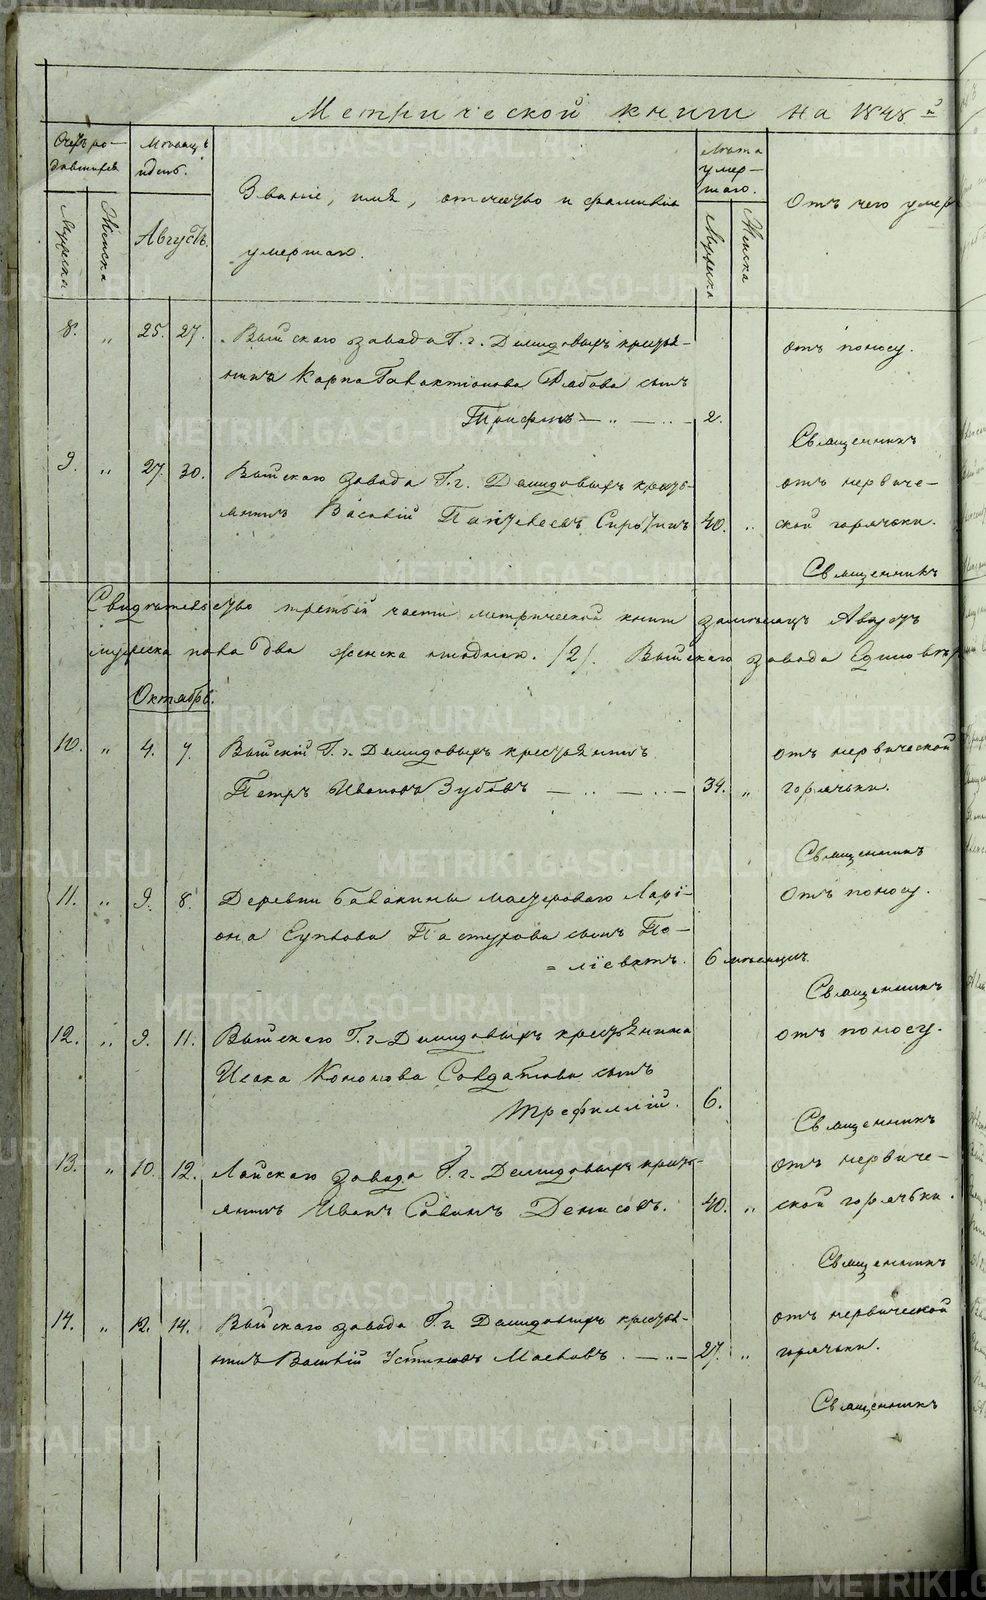 Метрической книги на 1848 й
Мѣсяцъ
и день.
Августъ.
Мужска.
Женска
Званіе, имя, отчество и фамилія
умершаго.
Лѣта
умер-
шаго.
Мужска
Женска
Отъ чего умер
8. „ 25. 27. Выйскаго завода Г. г. Демидовыхъ кресть-
янина Карпа Галактіонова сынъ
Трифонъ — „ — „ — 2.
отъ поносу.
Священникъ
9. „ 27. 30. Выйскаго завода Г. г. Демидовыхъ кресть-
янинъ Василій Сиротинъ 40. „
отъ нервиче-
ской горячьки.
Священникъ
Свидѣтельство третьей части метрической книги за мѣсяцъ Августъ
мужеска пола два женска /2/. Выйскаго завода Единовѣр
Октябрь.
10. „ 4. 7. Выйскій Г. г. Демидовыхъ крестьянинъ
Петръ Ивановъ Зубовъ — „ — „ — 34. „
отъ нервической
горячьки.
Священникъ
11. „ 9. 8. Деревни Балакины мастероваго Ларі-
она Пастухова сынъ По-
= ліевктъ. 6 мѣсяцъ.
отъ поносу.
Священникъ
12. „ 9. 11. Выйскаго Г. г. Демидовыхъ крестьянина
Исака Кононова Солдатова сынъ
Трефилій. 6.
отъ поносу.
Священникъ
13. „ 10. 12. Лайскаго завода Г. г. Демидовыхъ кресть-
янинъ Иванъ Савинъ Денисовъ. 40. „
отъ нервиче-
ской горячьки.
Священникъ
14. „ 12. 14. Выйскаго завода Г. г. Демидовыхъ крестья-
нинъ Василій Устиновъ Масловъ. — „ — 27. „
отъ нервической
горячьки.
Священникъ
METRIKI.GASO-URAL.RU